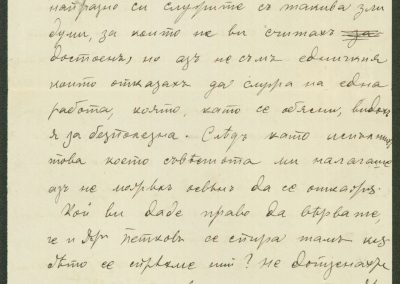 напразно си служите съ такива зли
думи, за които не ви считахъ
достоенъ, но азъ не съмъ единичния
които отказахъ да служа на една
работа, която, като се обясни, видохъ
я за безполезна. Следъ като испълних
това което съвѣстьта ми налагаше
азъ не можахъ освѣнъ да се откажа.
Кой ви даде право да вѣрвате,
че и Петковъ се спира тамъ
дѣто се спрѣхме ний? Не